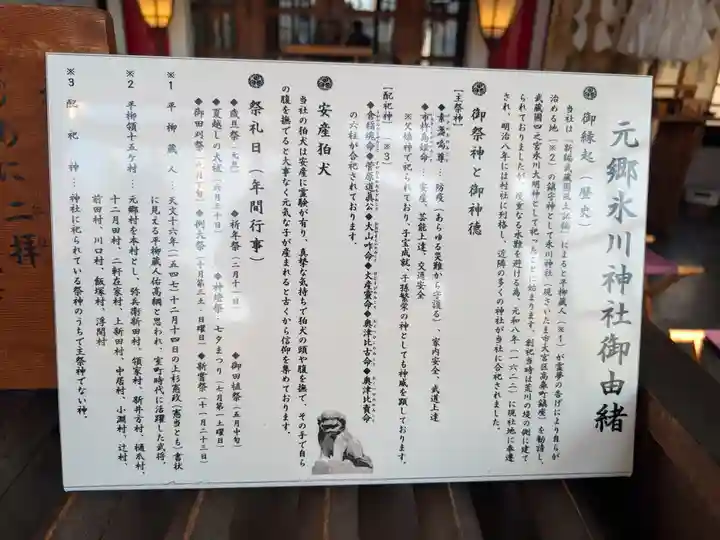 元郷氷川神社御由緒
御縁起(歴史)
当社は「新編武蔵国風土記稿」によると平柳蔵人(※1)が霊夢の告げにより自らが
治める地(※2)の鎮守神として氷川神社(現さいたま市大宮区高鼻町鎮座)を勧請し、
武蔵国四之宮氷川大明神として祀ったことに始まります。創祀当時は荒川の堤の側に建て
られておりましたが、度重なる水難を避ける為、元和八年(一六二二)に現社地に奉遷
され、明治八年には村社に列格し、近隣の多くの神社が当社に合祀されました。
御祭神と御神徳
【主祭神】
◆素盞嗚尊…防疫(あらゆる災難から守護る)、家内安全、武道上達
◆市杵島姫命…安産、芸能上達、交通安全
※父娘神で祀られており、子宝成就、子孫繁栄の神としても神威を顕しております。
【配祀神】(※3)
◆倉稲魂命◆菅原道真公◆大山咋命◆火産霊命◆奥津比古命◆奥津比売命
の六柱が合祀されております。
安産狛犬
当社の狛犬は安産に霊験が有り、真摯な気持ちで狛犬の頭や腹を撫で、その手で自ら
の腹を撫でると大事なく元気な子が産まれると古くから信仰を集めております。
祭礼日(年間行事)
◆歳旦祭(元旦) ◆祈年祭(二月十一日) ◆御田植祭(五月中旬)
◆夏越しの大祓(六月三十日) ◆神燈祭:七夕まつり(七月第一土曜日)
◆御田刈祭(九月下旬) ◆例大祭(十月第三土・日曜日) ◆新嘗祭(十一月二十三日)
※1 平柳蔵人…天文十六年(一五四七)十二月十四日の上杉憲政(憲当とも)書状
に見える平柳蔵人佑高綱と思われ、室町時代に活躍した武将。
※2 平柳領十五ヶ村…元郷村を本村とし、弥兵衛新田村、領家村、新井方村、樋爪村、
十二月田村、二軒在家村、上新田村、中居村、小淵村、辻村、
前田村、川口村、飯塚村、浮間村
※3 配祀神…神社に祀られている祭神のうちで主祭神でない神。